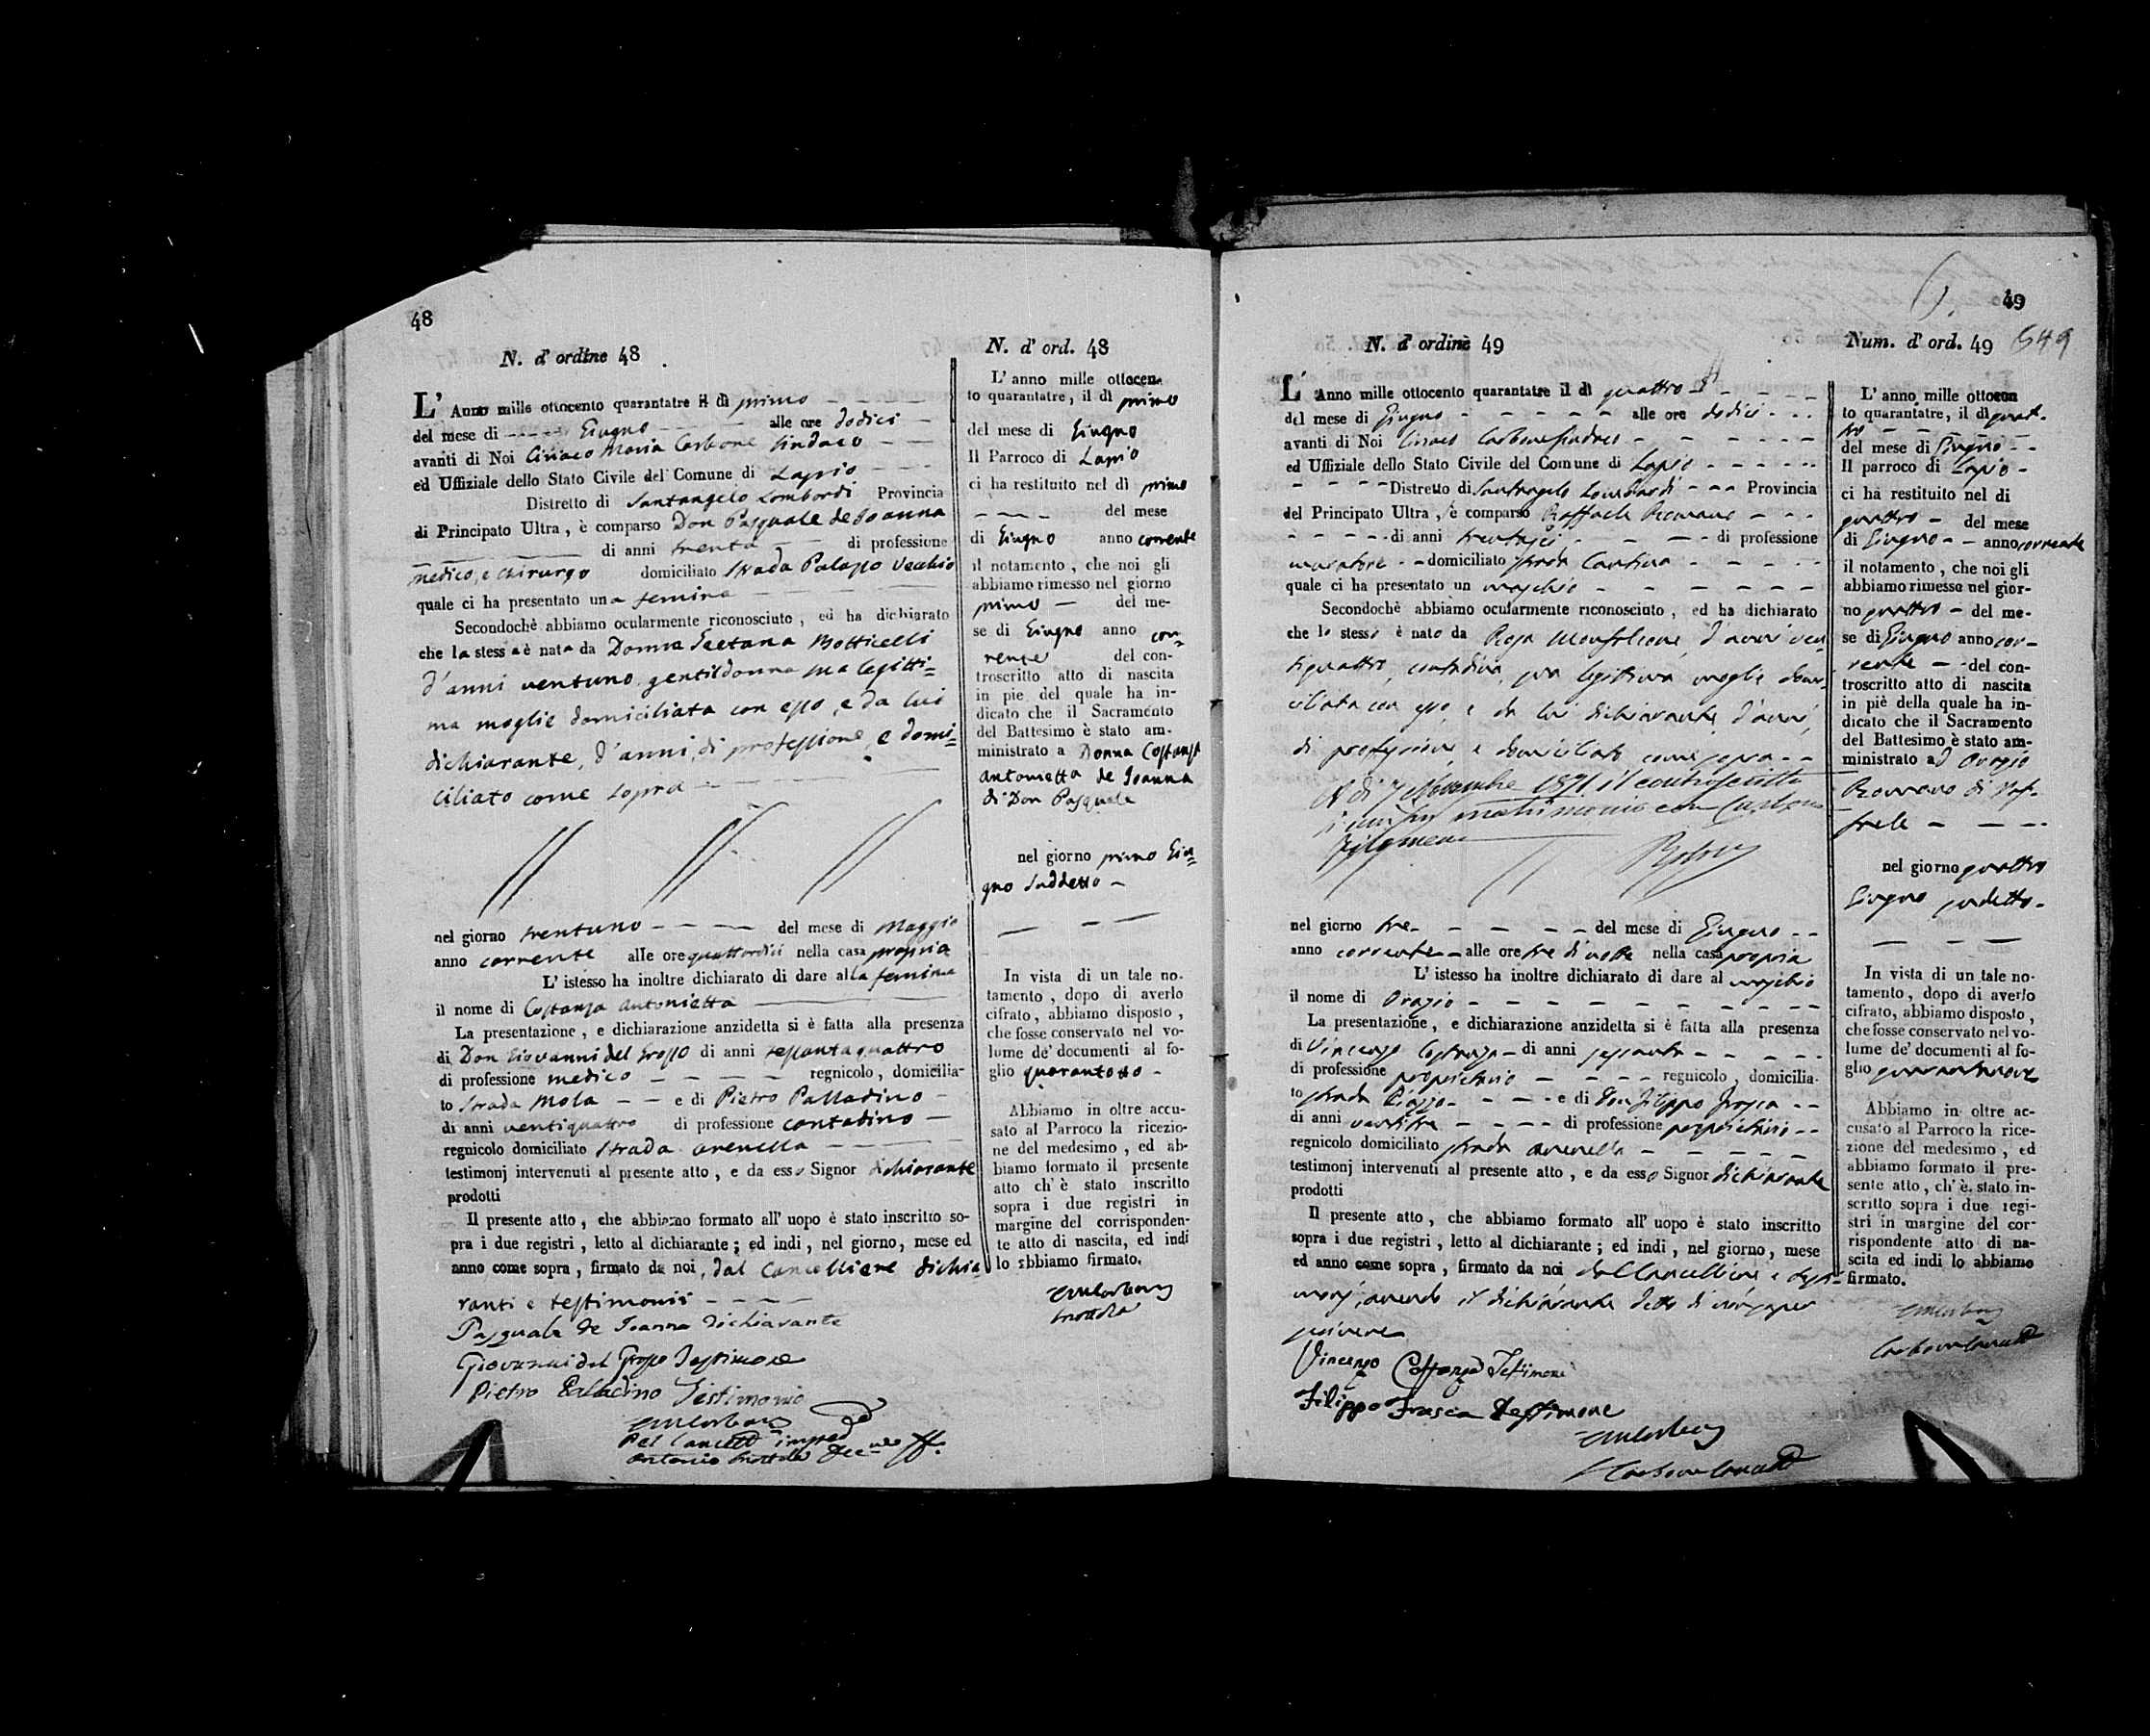 48
N. d' ordine 48
L' Anno mille ottocento quarantatre il dì primo
del mese di Giugno alle ore dodici
avanti di Noi Ciriaco Maria Carbone Sindaco
ed Uffiziale dello Stato Civile del Comune di Lapio
Distretto di Santangelo Lombardi Provincia
di Principato Ultra, è comparso Don Pasquale de Joanna
di anni trenta di professione
medico, e chirurgo domiciliato strada Palazzo Vecchio
quale ci ha presentato una femina
Secondochè abbiamo ocularmente riconosciuto, ed ha dichiarato
che la stessa è nata da Donna Gaetana Botticelli
d'anni ventuno gentildonna sua legitti=
ma moglie domiciliata con esso, e da lui
dichiarante, d'anni, di professione, e domi=
ciliato come sopra
nel giorno trentuno del mese di Maggio
anno corrente alle ore quattordici nella casa propria
L' istesso ha inoltre dichiarato di dare alla femina
il nome di Costanza Antonietta
La presentazione, e dichiarazione anzidetta si è fatta alla presenza
di Don Giovanni del Grosso di anni sessantaquattro
di professione medico regnicolo, domicilia-
to strada Mola e di Pietro Palladino
di anni ventiquattro di professione contadino
regnicolo domiciliato strada arenella
testimonj intervenuti al presente atto, e da esso Signor dichiarante
prodotti
Il presente atto, che abbiamo formato all' uopo è stato inscritto so-
pra i due registri, letto al dichiarante; ed indi, nel giorno, mese ed
anno come sopra, firmato da noi, dal Cancelliere dichia=
ranti e testimonii
Pasquale de Joanna dichiarante
Giovanni del Grosso Testimone
Pietro Palladino Testimonio
N. d' ord. 48
L' anno mille ottocen-
to quarantatre, il dì primo
del mese di Giugno
Il Parroco di Lapio
ci ha restituito nel dì primo
del mese
di Giugno anno corrente
il notamento, che noi gli
abbiamo rimesso nel giorno
primo del me-
se di Giugno anno cor=
rente del con-
troscritto atto di nascita
in pie del quale ha in-
dicato che il Sacramento
del Battesimo è stato am-
ministrato a Donna Costanza
Antonietta de Joanna
di Don Pasquale
nel giorno primo Giu=
gno suddetto
In vista di un tale no-
tamento, dopo di averlo
cifrato, abbiamo disposto,
che fosse conservato nel vo-
lume de' documenti al fo-
glio quarantotto
Abbiamo in oltre accu-
sato al Parroco la ricezio-
ne del medesimo, ed ab-
biamo formato il presente
atto ch' è stato inscritto
sopra i due registri in
margine del corrisponden-
te atto di nascita, ed indi
lo abbiamo firmato.
49
N. d' ordine 49
L' Anno mille ottocento quarantatre il dì quattro
del mese di Giugno alle ore dodici
avanti di Noi Ciriaco Carbone Sindaco
ed Uffiziale dello Stato Civile del Comune di Lapio
Distretto di Santangelo Lombardi Provincia
del Principato Ultra, è comparso Raffaele Romano
di anni trentasei di professione
muratore domiciliato strada Cantina
quale ci ha presentato un maschio
Secondochè abbiamo ocularmente riconosciuto, ed ha dichiarato
che lo stesso è nato da Rosa d'anni ven
tiquattro, contadina, sua legittima moglie domi-
ciliata con esso, e da lui dichiarante, d'anni,
di professione, e domiciliato come sopra
A dì 7 Novembre 1871 il controscritto
matrimonio con Carbone
Filomena
nel giorno tre del mese di Giugno
anno corrente alle ore tre di notte nella casa propria
L' istesso ha inoltre dichiarato di dare al maschio
il nome di Orazio
La presentazione, e dichiarazione anzidetta si è fatta alla presenza
di Vincenzo Costanza di anni sessanta
di professione proprietario regnicolo, domicilia-
to strada Piazza e di Don Filippo Frasca
di anni ventitre di professione proprietario
regnicolo domiciliato strada arenella
testimonj intervenuti al presente atto, e da esso Signor dichiarante
prodotti
Il presente atto, che abbiamo formato all' uopo è stato inscritto
sopra i due registri, letto al dichiarante; ed indi, nel giorno, mese
ed anno come sopra, firmato da noi dal Cancelliere e testi-
monj, avendo il dichiarante detto di non saper
scrivere
Vincenzo Costanza Testimone
Filippo Frasca Testimone
Num. d' ord. 49 549
L' anno mille ottocen
to quarantatre, il dì quat-
tro
del mese di Giugno
Il parroco di Lapio
ci ha restituito nel di
quattro del mese
di Giugno anno corrente
il notamento, che noi gli
abbiamo rimesso nel gior-
no quattro del me-
se di Giugno anno cor-
rente del con-
troscritto atto di nascita
in piè della quale ha in-
dicato che il Sacramento
del Battesimo è stato am-
ministrato ad Orazio
Romano di Raf-
faele
nel giorno quattro
Giugno sudetto
In vista di un tale no-
tamento, dopo di averlo
cifrato, abbiamo disposto,
che fosse conservato nel vo-
lume de' documenti al fo-
glio quarantanove
Abbiamo in oltre ac-
cusato al Parroco la rice-
zione del medesimo, ed
abbiamo formato il pre-
sente atto, ch' è stato in-
scritto sopra i due regi-
stri in margine del cor-
rispondente atto di na-
scita ed indi lo abbiamo
firmato.